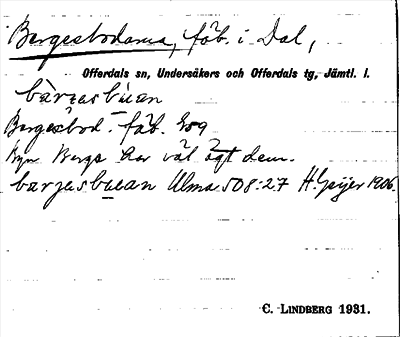 Bergesbodarna, fäb. i Dal,
Offerdals sn, Undersåkers och Offerdals tg, Jämtl. l.
bàrɡasbùan
Bergesbod. fäb. Gs9
Byn Berge har väl ägt dem.
barjasbuean Ulma 508:27 H. Geijer 1906.
C. LINDBERG 1931.